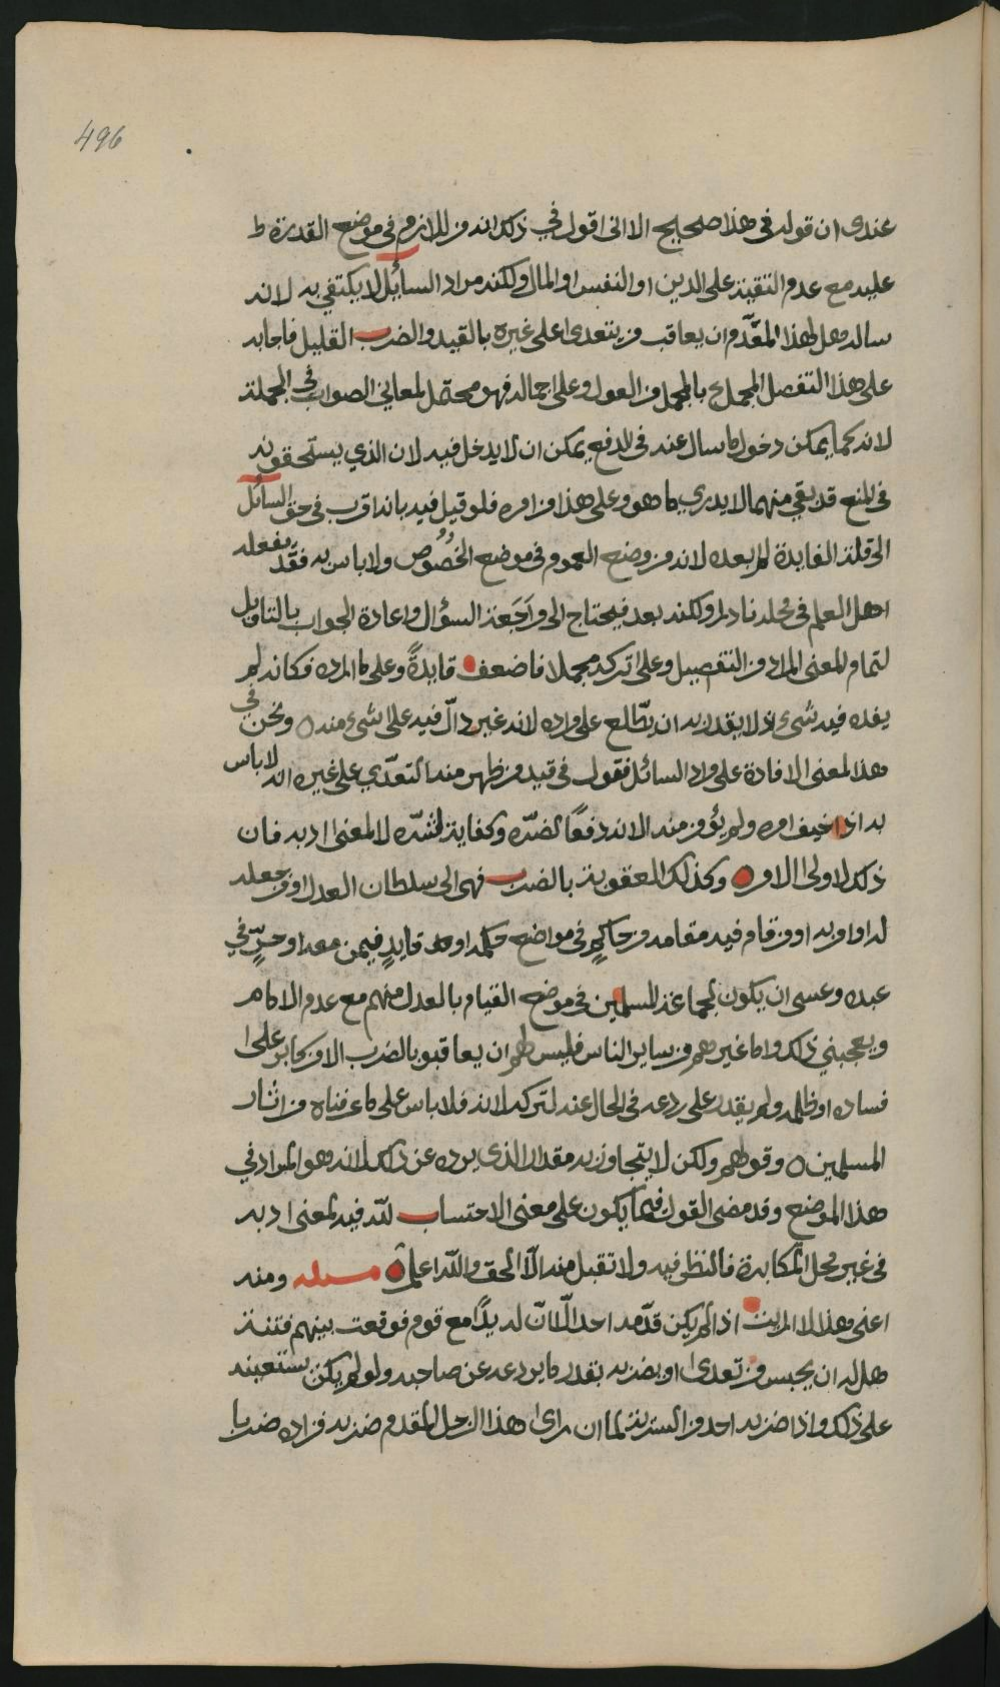 496
عندى ان قوله فى هذا صحيح الا انى اقول في ذلك انه من اللازم فى موضع القدرة ط
عليه مع عدم التقية على الدين او النفس او المال ولكنه مراد السائل لا يكتفي به لانه
ساله وهل لهذا المقدّم ان يعاقب من يتعدى على غيره بالقيد والضرب القليل فاجابه
على هذا التفصل المجمل بالمجمل من القول وعلى اجماله فهو محتمل لمعاني الصواب في الجملة
لانه كما يمكن دخول ما سال عنه فى الدفع يمكن ان لا يدخل فيه لان الذي يستحقونه
فى المنع قد بقي منهما لا يدرى ما هو وعلى هذا من امره فلو قيل فيه بانه اقرب فى حق السائل
الى قلة الفايدة لم ابعده لانه من وضع العموم فى موضع الخصُوص ولا باس به فقد يفعله
اهل العلم فى محله نادرا ولكنه بعد فيحتاج الى مراجعة السؤال واعادة الجواب بالتاويل
لتمام المعنى المراد من التفصيل وعلى تركه مجملا فما ضعف فايدةً وعلى ما اراده فكانه لم
يفده فيه شىء اذ لا يقدر به ان يطّالع على مراده لانه غير دالّ فيه على شىء منه ٥ ونحن في
هذا المعنى الافادة على مراد السائل فنقول فى قيد من ظهر منه التعدّي على غيره انه لا باس
به اذا خيف امره ولم يؤمن منه الا انه دفعًا لضرّه وكفاية لشرّه لا لمعنى ادبه فان
ذلك لاولى الامر وكذلك العقوبة بالضرب فهى الى سلطان العدل او من جعله
له او امر به او من قام فيه مقامه من حاكمٍ فى مواضع حكمه او قايدٍ فيمن معه او حرٍّ في
عبده وعسى ان يكون لجماعة المسلمين فى موضع القيام بالعدل منهم مع عدم الامام
ويعجبني ذلك واما غيرهم من ساير الناس فليس لهم ان يعاقبو بالضرب الا من كابر على
فساده او ظلمه ولم يقدر على ردعه فى الحال عنه لتركه لانه فلا باس على ما عرفناه من اثار
المسلمين ٥ وقولهم ولكن لا يتجاوز به مقدار الذى يرده عن ذلك لانه وهو المراد في
هذا الموضع وقد مضى القول فيما يكون على معنى الاحتساب لله فيه لمعنى ادبه
فى غير محل المكابرة فالنظر فيه ولا تقبل منه الّا الحق والله اعلم مسئله ومنه
اعنى وهذا لا المريت اذا لم يكن قدّمه احد الّا انّ له يدًا مع قوم فوقعت بينهم فتنة
هل له ان يحبس من تعدى او يضربه بقدر ما يردعه عن صاحبه ولو لم يكن يستعينه
على ذلك واذا ضربه احد من السرية لما ان راى هذا الرجل المقدم ضربه فزاده ضربا